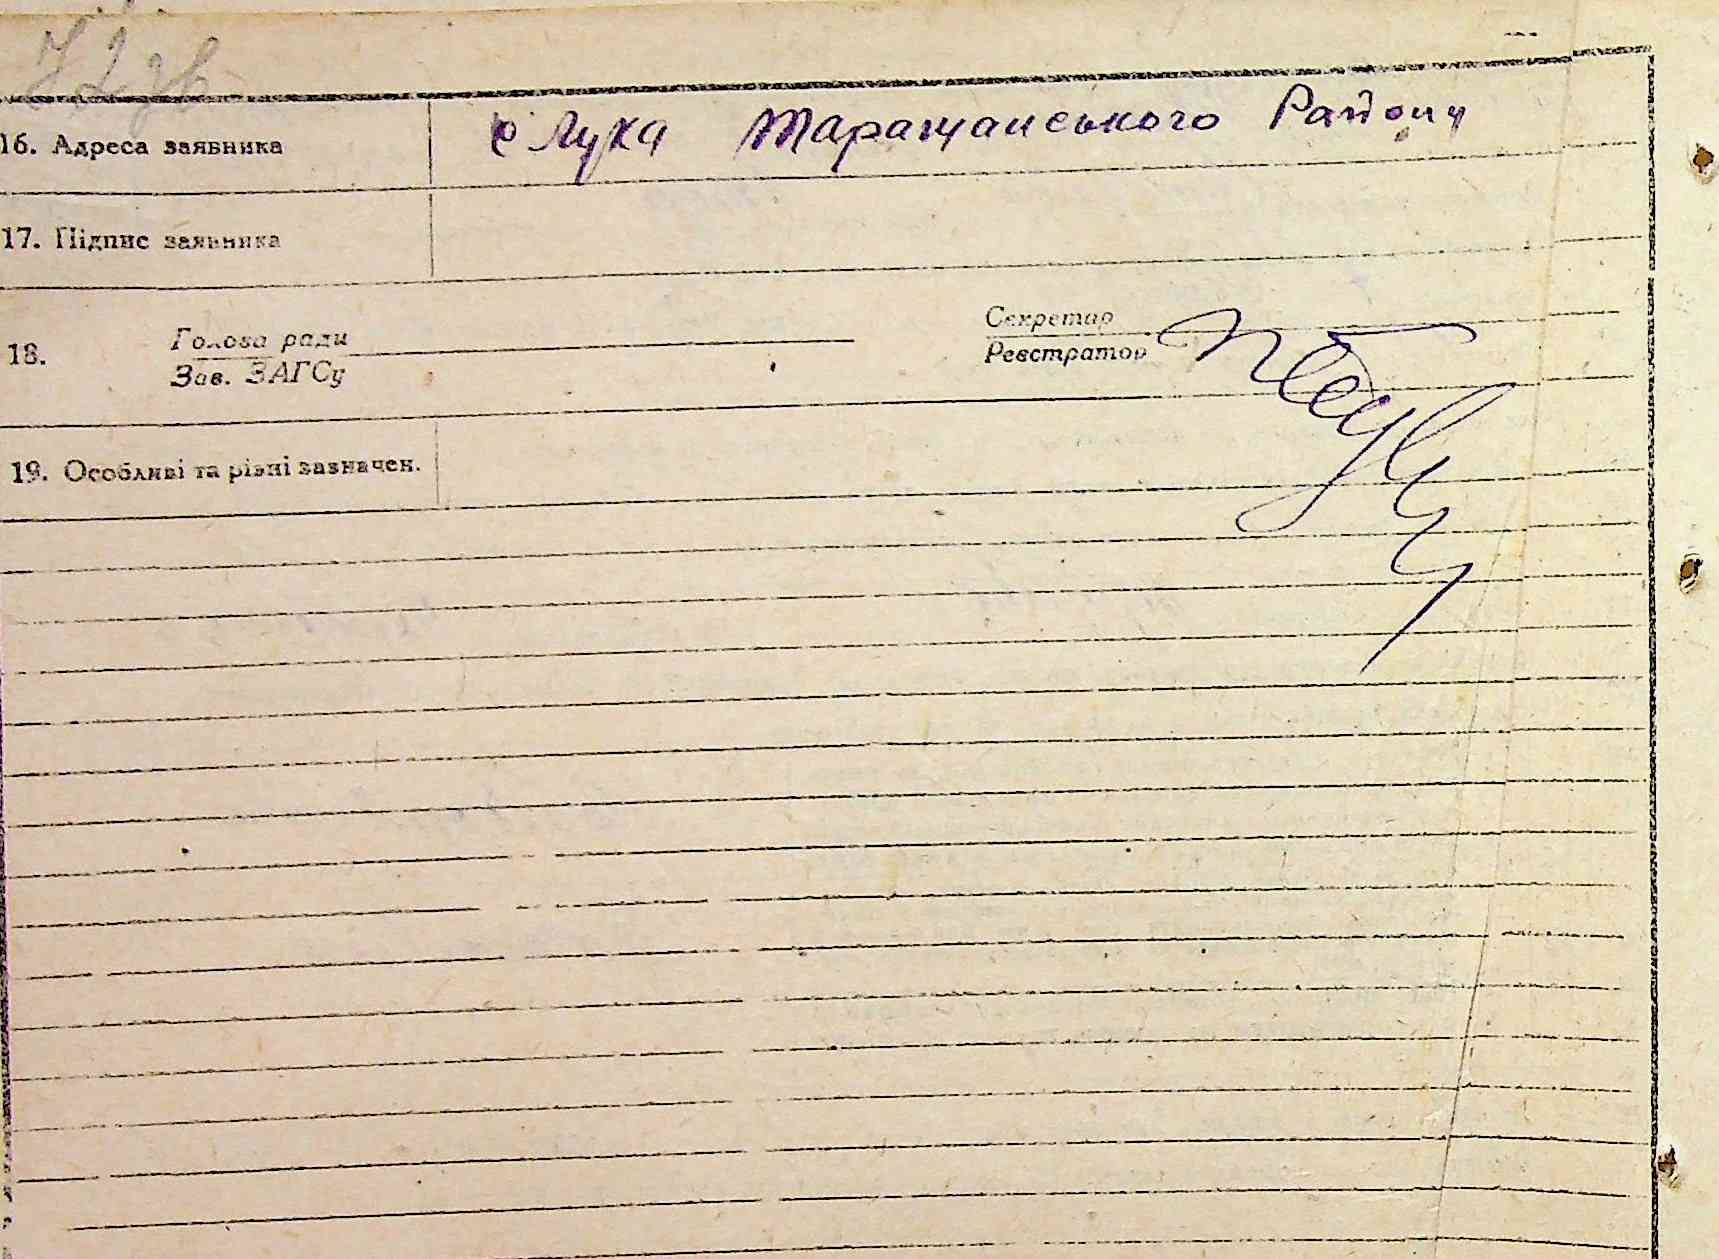 72 зв
16. Адреса заявника с Лука Таращанського Району
17. Підпис заявника
18. Голова ради Секретар
Зав. ЗАГСу Реєстратор
19. Особливі та різні зазначен.